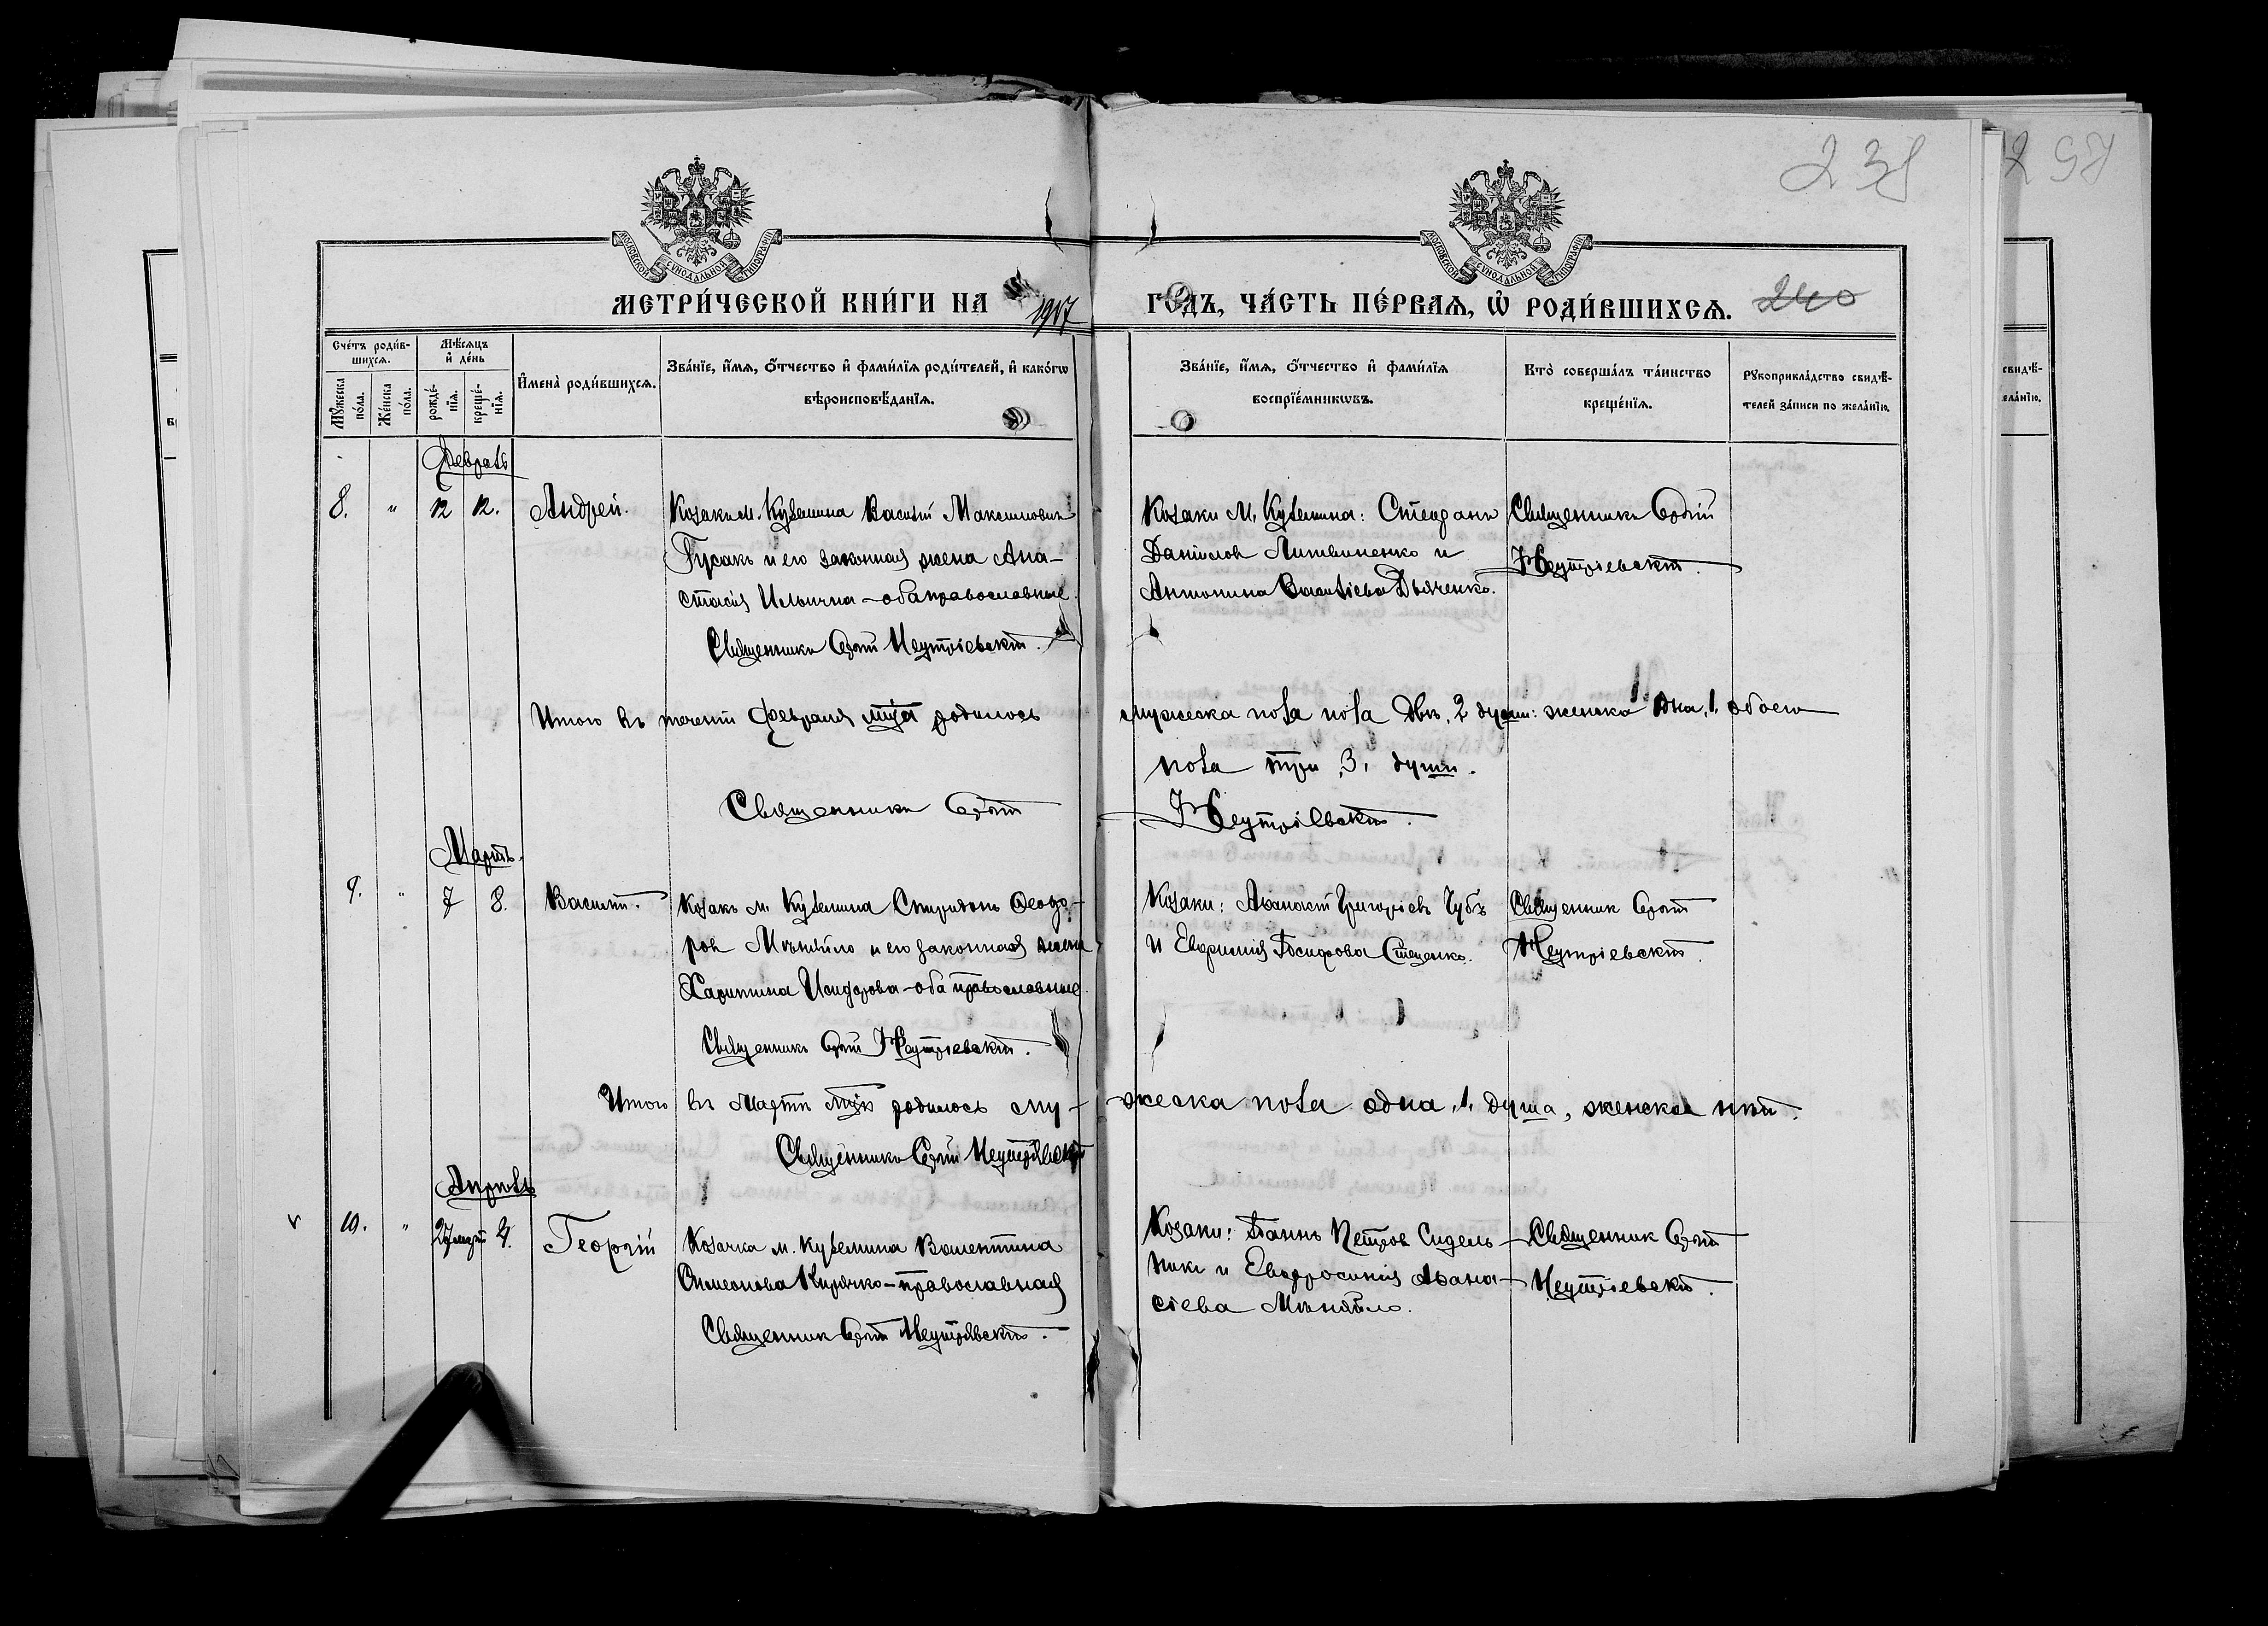 238
298
МОСКОВСКОЙ СѴНОДАЛЬНОЙ ТИПОГРАФІИ
МОСКОВСКОЙ СѴНОДАЛЬНОЙ ТИПОГРАФІИ
МЕТРИ́ЧЕСКОЙ КНИ́ГИ НА 1917 ГО́ДЪ, ЧА́СТЬ ПЕ́РВАЯ, Ѡ҆ РОДИ́ВШИХСЯ.
240
Сче́тъ роди́в-
шихся.
Мѣ́сяцъ
и҆ де́нь
Мꙋ́жеска
по́ла.
Же́нска
по́ла.
рожде́-
нїя.
креще́-
нїя.
И҆мена̀ роди́вшихся.
Зва́нїе, и҆́мя, ѻ҆́тчество и҆ фами́лїя роди́телей, и҆ како́гѡ
вѣроисповѣ́данїя.
Зва́нїе, и҆́мя, ѻ҆́тчество и҆ фами́лїя
воспрїе́мникѡвъ.
Кто̀ соверша́лъ та́инство
креще́нїя.
Рꙋкоприкла́дство свидѣ́-
телей за́писи по жела́нїю.
Февраль
8. " 12 12. Андрей.
Козакъ м. Куземина Василій Максимовичъ
Гусакъ и его законная жена Ана-
стасія Ильична - оба православные.
Священникъ Сергій Неутріевскій.
Козаки м. Куземина: Стефанъ
Даніиловъ Литвиненко и
Антонина Васильева Дьяченко.
Священникъ Сергій
Неутріевскій.
Итого въ теченіи февраля мца родилось мужеска пола пола двѣ, 2 души: женска одна, 1, обоего
пола три, 3, души.
Священникъ Сергій Неутріевскій.
Мартъ.
9. " 7 8. Василій.
Козакъ м. Куземина Спиридонъ Ѳеодо-
ровъ Мѣняйло и его законная жена
Харитина Исидорова - оба православные.
Священникъ Сергій Неутріевскій.
Козаки: Аѳанасій Григорьевъ Чубъ
и Евфимія Іосифова Стеценко.
Священникъ Сергій
Неутріевскій.
Итого въ Мартѣ мцѣ родилось му-жеска пола одна, 1, душа, женска нѣтъ.
Священникъ Сергій Неутріевскій
Апрѣль
10. " 27 марта 2. Георгій
Козачка м. Куземина Валентина
Симеонова Кирячко - православная
Священникъ Сергій Неутріевскій.
Козаки: Іоаннъ Петровъ Сидель-
никъ и Евфросинія Аѳана-
сіева Мѣняйло.
Священникъ Сергій
Неутріевскій.